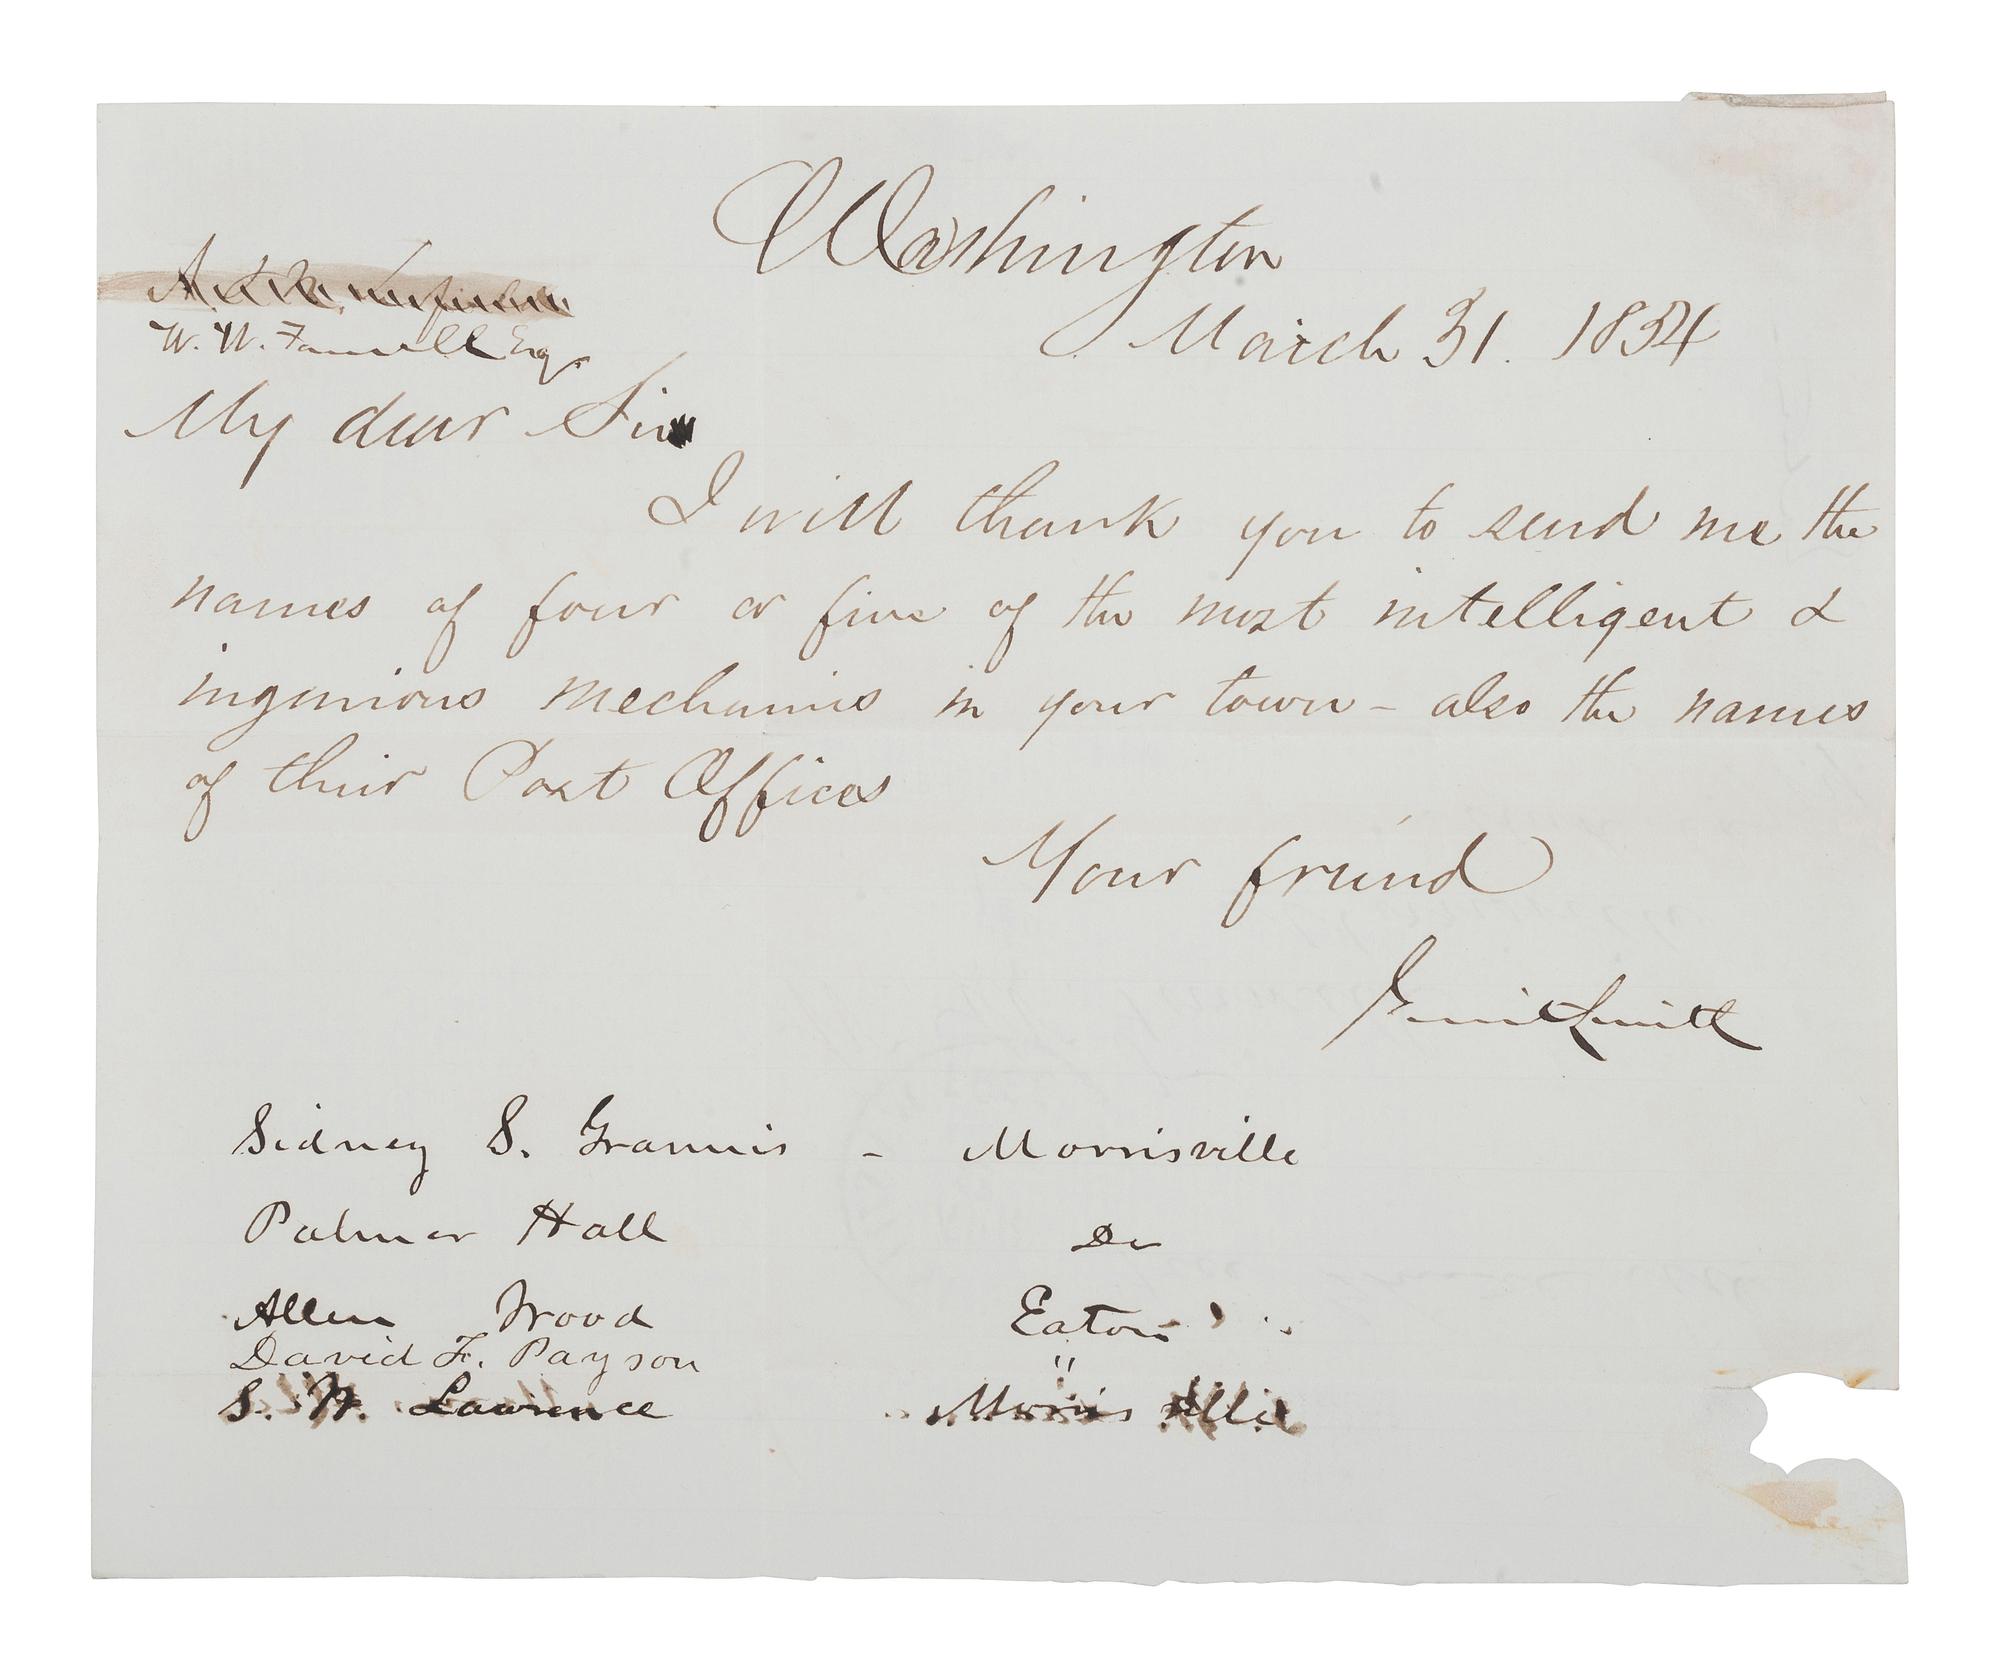 Washington
March 31. 1854
W. W. Farwell Esq.
My dear Sir
I will thank you to send me the
names of four or five of the most intelligent &
ingenious mechanics in your town - also the names
of their Post Offices
Your friend
Gerrit Smith
Sidney S. Grannis - Morrisville
Palmer Hall Do
Allen Wood Eaton
David F. Payson "
S. W. Lawrence Morrisville